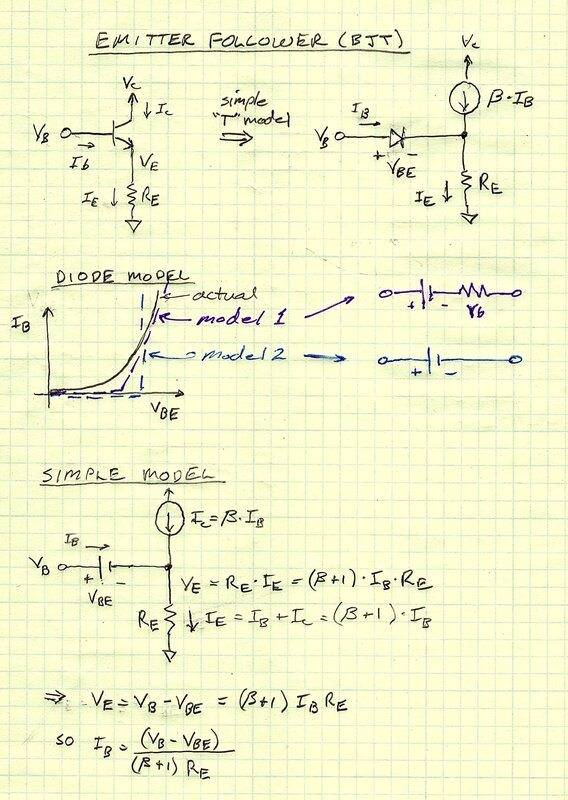 EMITTER FOLLOWER (BJT)
Vc
Ic
VB
Ib
VE
IE
RE
simple
"T" model
⇒
Vc
β·IB
IB
VB
+ VBE -
IE
RE
DIODE MODEL
IB
VBE
actual
model 1
model 2
+ -
rb
+ -
SIMPLE MODEL
Ic = β·IB
IB
VB
+ -
VBE
VE = RE·IE = (β+1)·IB·RE
RE
IE = IB + Ic = (β+1)·IB
⇒ VE = VB - VBE = (β+1) IB RE
so IB = (VB - VBE)
(β+1) RE